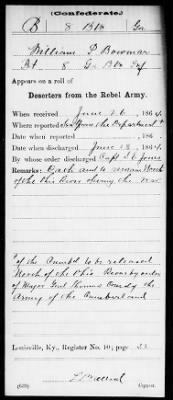 (Confederate.)
B 8 Btn Ga.
William P Bowman
Pt 8 Ga Btn Inf
Appears on a roll of
Deserters from the Rebel Army.
When received June 26, 1864
Where reported from the Department
When reported , 186
Date when discharged June 28, 1864
By whose order discharged Capt S E Jones
Remarks: Oath and to remain North
of the Ohio River during the war
of the to be released
North of the Ohio River by order
of Major Genl Thomas Comdg the
Army of the Cumberland
Louisville, Ky., Register No. 10; page
(639) Copyist.